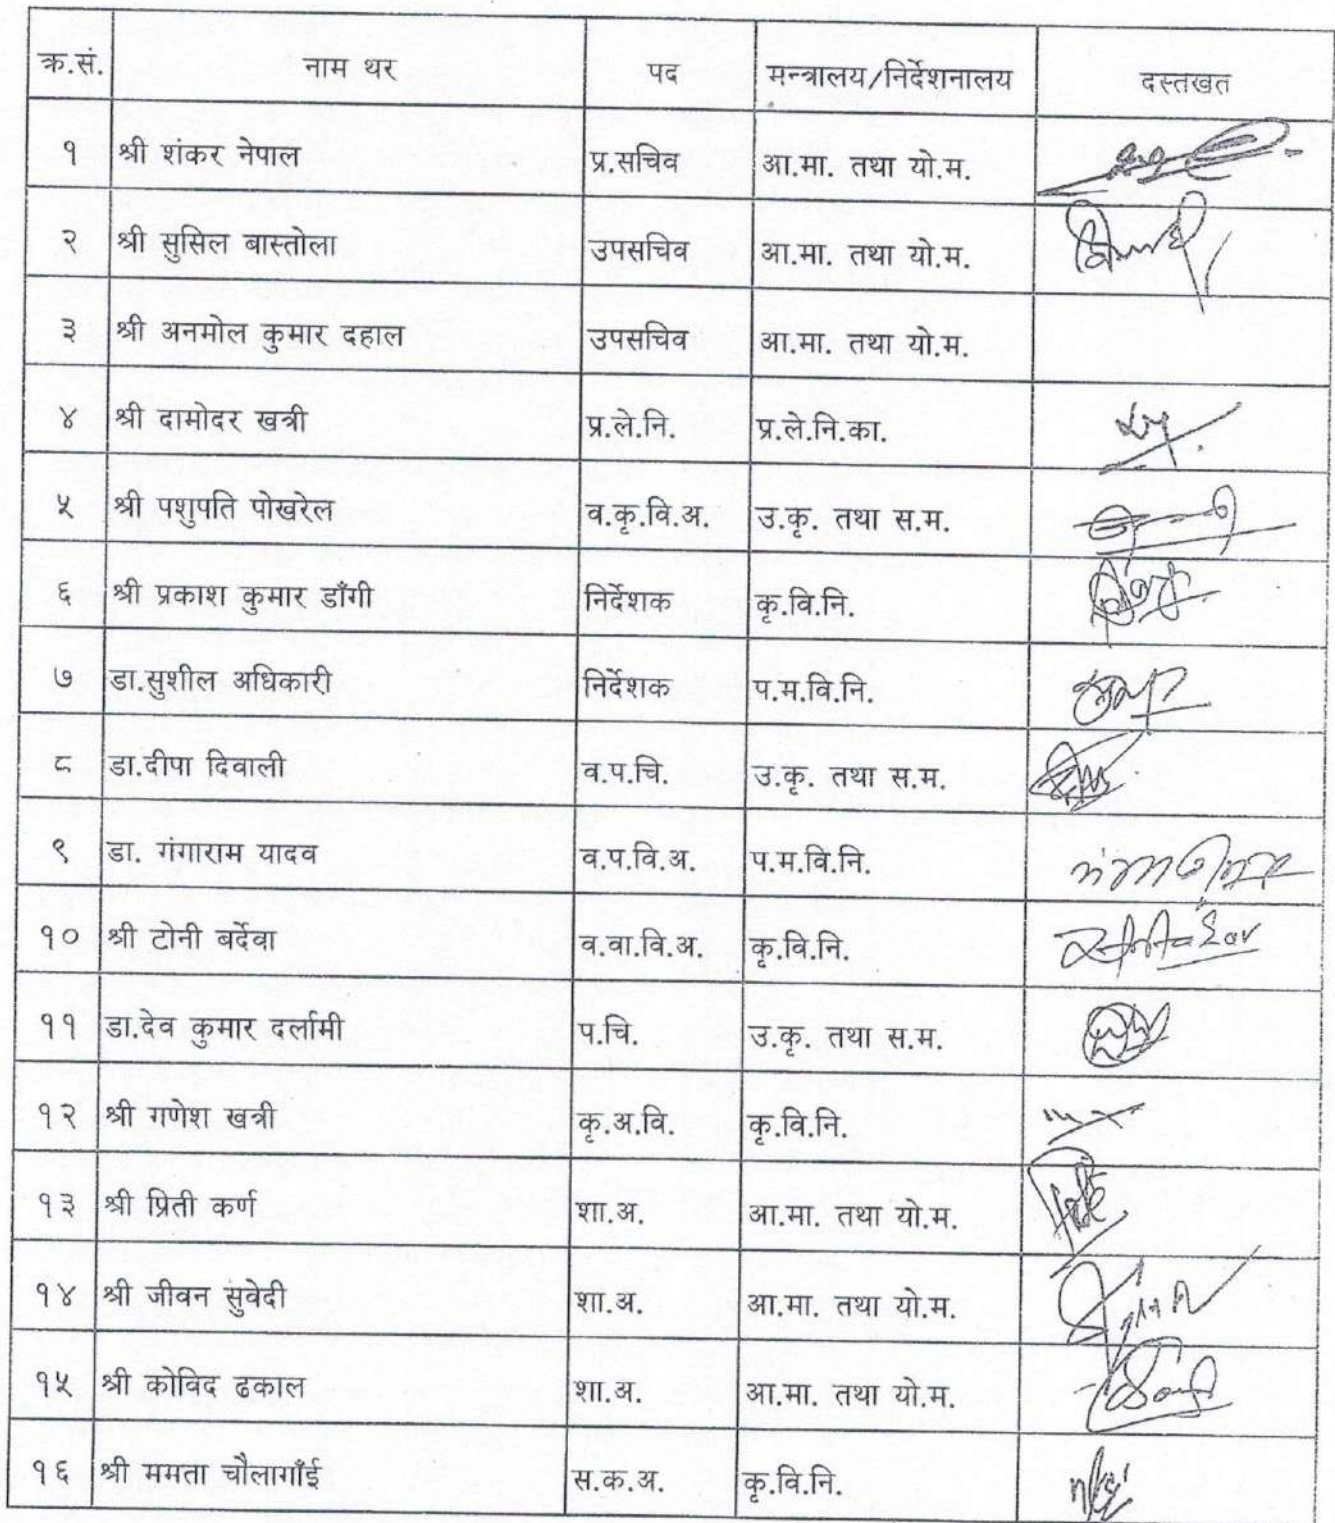 क्र.सं. नाम थर पद मन्त्रालय/निर्देशनालय दस्तखत
१ श्री शंकर नेपाल प्र.सचिव आ.मा. तथा यो.म.
२ श्री सुसिल बास्तोला उपसचिव आ.मा. तथा यो.म.
३ श्री अनमोल कुमार दहाल उपसचिव आ.मा. तथा यो.म.
४ श्री दामोदर खत्री प्र.ले.नि. प्र.ले.नि.का.
५ श्री पशुपति पोखरेल व.कृ.वि.अ. उ.कृ. तथा स.म.
६ श्री प्रकाश कुमार डाँगी निर्देशक कृ.वि.नि.
७ डा.सुशील अधिकारी निर्देशक प.म.वि.नि.
८ डा.दीपा दिवाली व.प.चि. उ.कृ. तथा स.म.
९ डा. गंगाराम यादव व.प.वि.अ. प.म.वि.नि.
१० श्री टोनी बर्देवा व.वा.वि.अ. कृ.वि.नि.
११ डा.देव कुमार दर्लामी प.चि. उ.कृ. तथा स.म.
१२ श्री गणेश खत्री कृ.अ.वि. कृ.वि.नि.
१३ श्री प्रिती कर्ण शा.अ. आ.मा. तथा यो.म.
१४ श्री जीवन सुवेदी शा.अ. आ.मा. तथा यो.म.
१५ श्री कोविद ढकाल शा.अ. आ.मा. तथा यो.म.
१६ श्री ममता चौलागाँई स.क.अ. कृ.वि.नि.